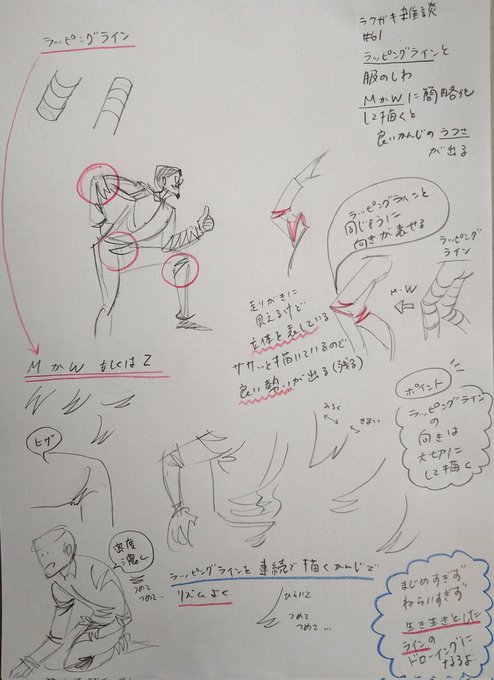 ラッピングライン
ラクガキ雑談
#61
ラッピングラインと
服のしわ
MかWに簡略化
して描くと
良いかんじのラフさ
が出る
ラッピングラインと
同じように
向きが表せる
ラッピング
ライン
M・W
走りがきに
見えるけど
立体を表している
ササッと描いているので
良い勢いが出る(残る)
MかW もしくはZ
ポイント
ラッピングライン
の
向きは
大切に
して描く
ヒゲ
ひろく
せまい
密度
濃く
つめて
つめて…
ラッピングラインを連続で描くかんじで
リズムよく
ひらいて
つめて
つめて…
まじめすぎず
ねらいすぎず
生き生きとした
ラインの
ドローイングに
なるよ。